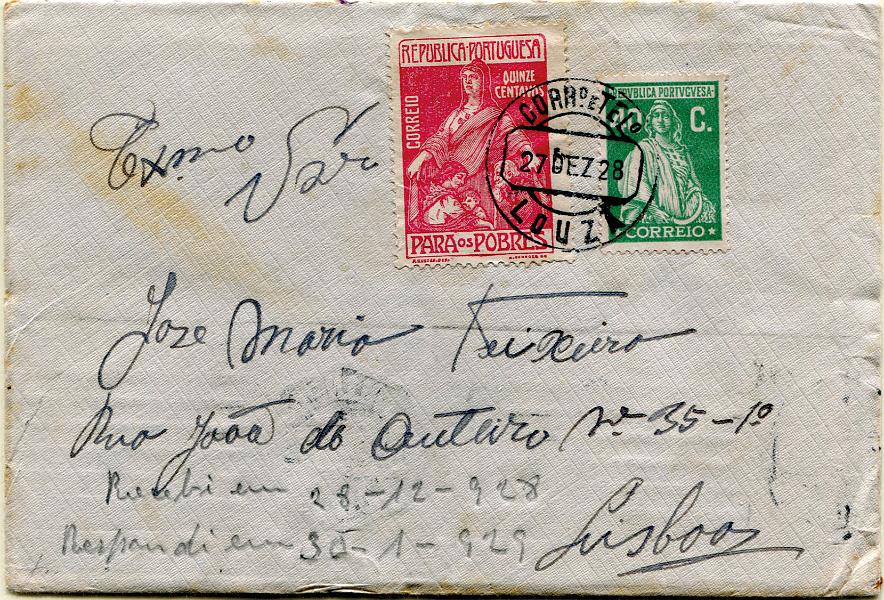 REPUBLICA·PORTUGUESA
QUINZE
CENTAVOS
CORREIO
PARA OS POBRES
REPVBLICA PORTVGVESA
C.
CORREIO
CORRO E TELO
27 DEZ 28
LOUZ
Exmo Snr
Jose Maria Teixeira
Rua João do Outeiro No 35-1o
Recebi em 28-12-928
Respondi em 30-1-929
Lisboa